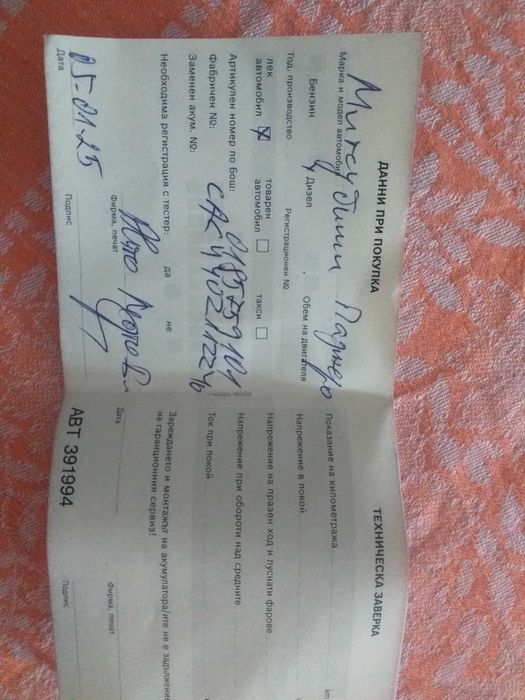 ДАННИ ПРИ ПОКУПКА
Мицубиши Паджеро
Марка и модел автомобил
Бензин Дизел Обем на двигателя
Год. производство Регистрационен №
лек автомобил x товарен автомобил такси
Артикулен номер по Бош:
Фабричен №:
Заменен акум. №:
Необходима регистрация с тестер: да не
05.01.25
Дата Фирма, печат
Подпис
ТЕХНИЧЕСКА ЗАВЕРКА
Показание на километража km
Напрежение в покой
Напрежение на празен ход и пуснати фарове
Напрежение при обороти над средните
Ток при покой
Зареждането и монтажът на акумулатора/ите не е задължение
на гаранционния сервиз!
Дата Фирма, печат
Подпис
АВТ 391994